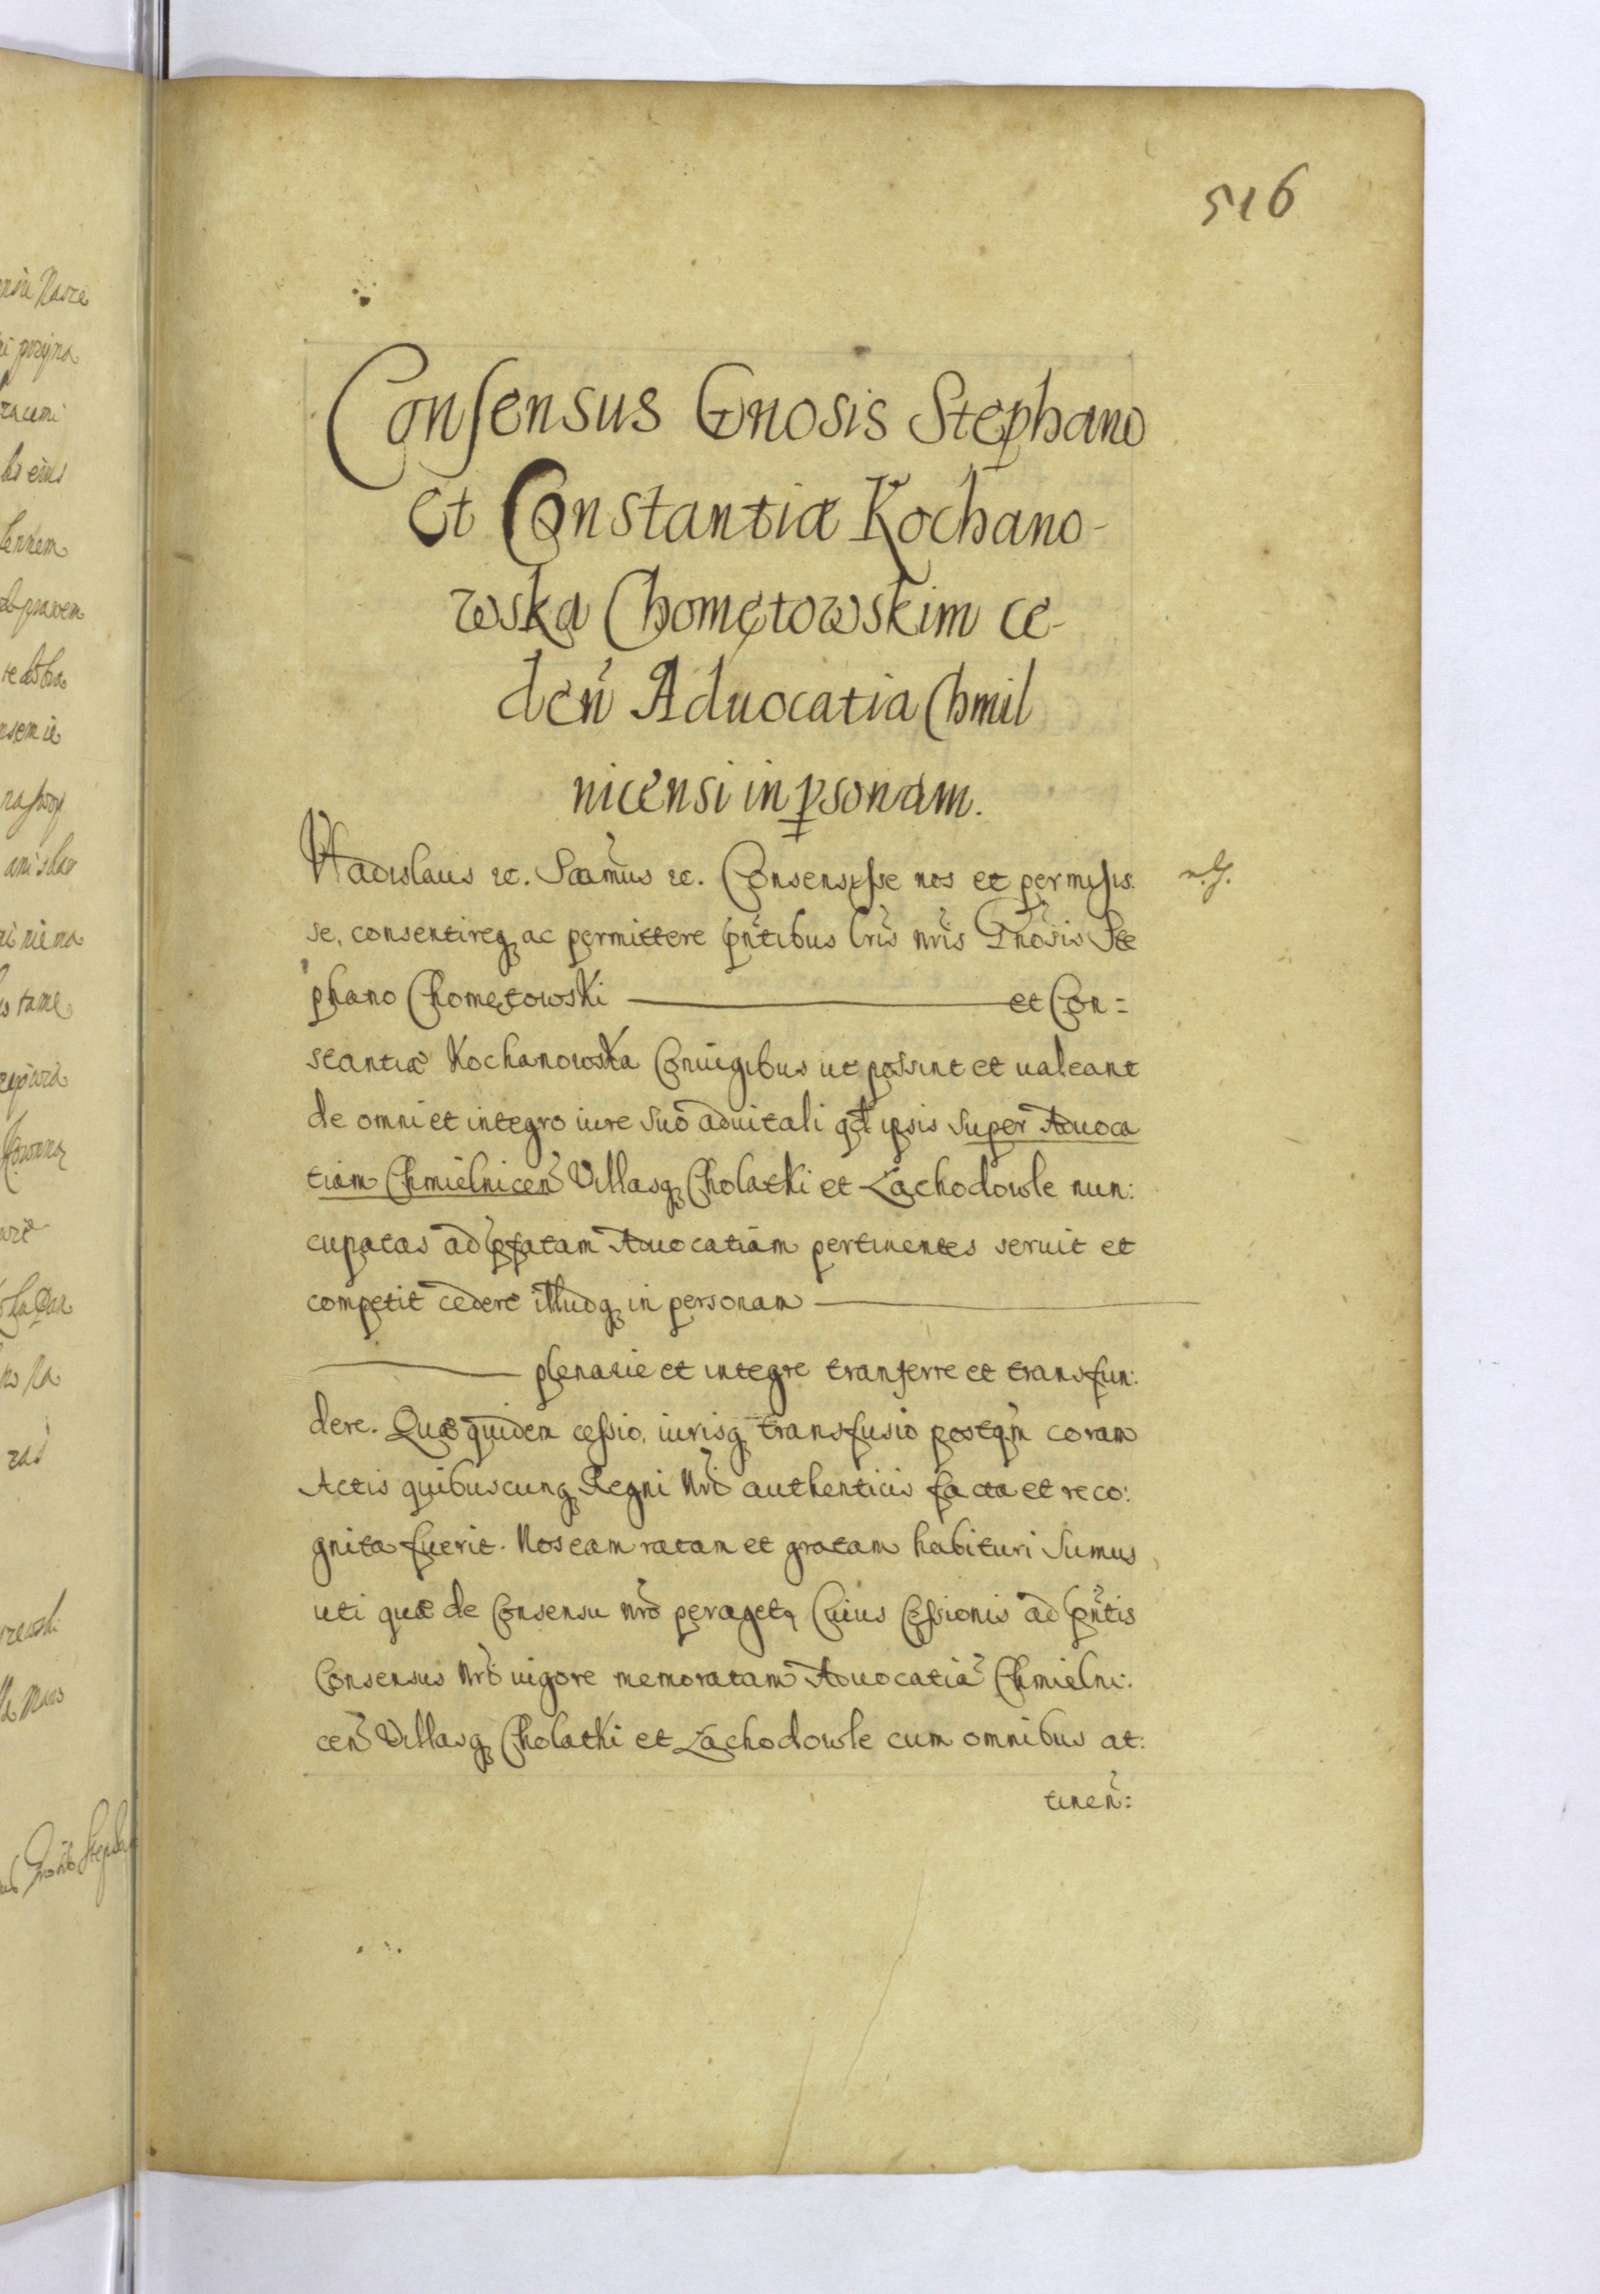 516
Consensus Gnosis Stephano
et Constantiæ Kochano-
wska Chomętowskim ce-
den̄ Aduocatia Chmil
nicensi in p̱sonam.
Vladislaus etc. Saāmus etc. Consensisse nos et permisis
se, consentireq́ ac permittere pn̄tibus lr̄is nr̄is Gn̄osis Ste
phano Chomętowski — et Con=
stantiæ Kochanowska Coniugibus ut possint et ualeant
de omni et integro iure suo aduitali qd ipsis super Aduoca
tiam Chmielnicen̄ Villasq́ Cholatki et Zachodowle nun:
cupatas ad p̄fatam Aduocatiam pertinentes seruit et
competit cedere illudq́ in personam —
— plenarie et integre tranferre et transfun:
dere. Quæ quidem cessio, iurisq́ transfusio postqm̄ coram
Actis quibuscunq́ Regni Nrī authenticis facta et reco:
gnita fuerit. Nos eam ratam et gratam habituri sumus
uti quæ de Consensu nrō peraget₂ Cuius Cessionis ad pn̄tis
Consensus Nrī uigore memoratam Aduocatiā Chmielni:
cen̄ Villasq́ Cholatki et Zachodowle cum omnibus at:
tinen̄: